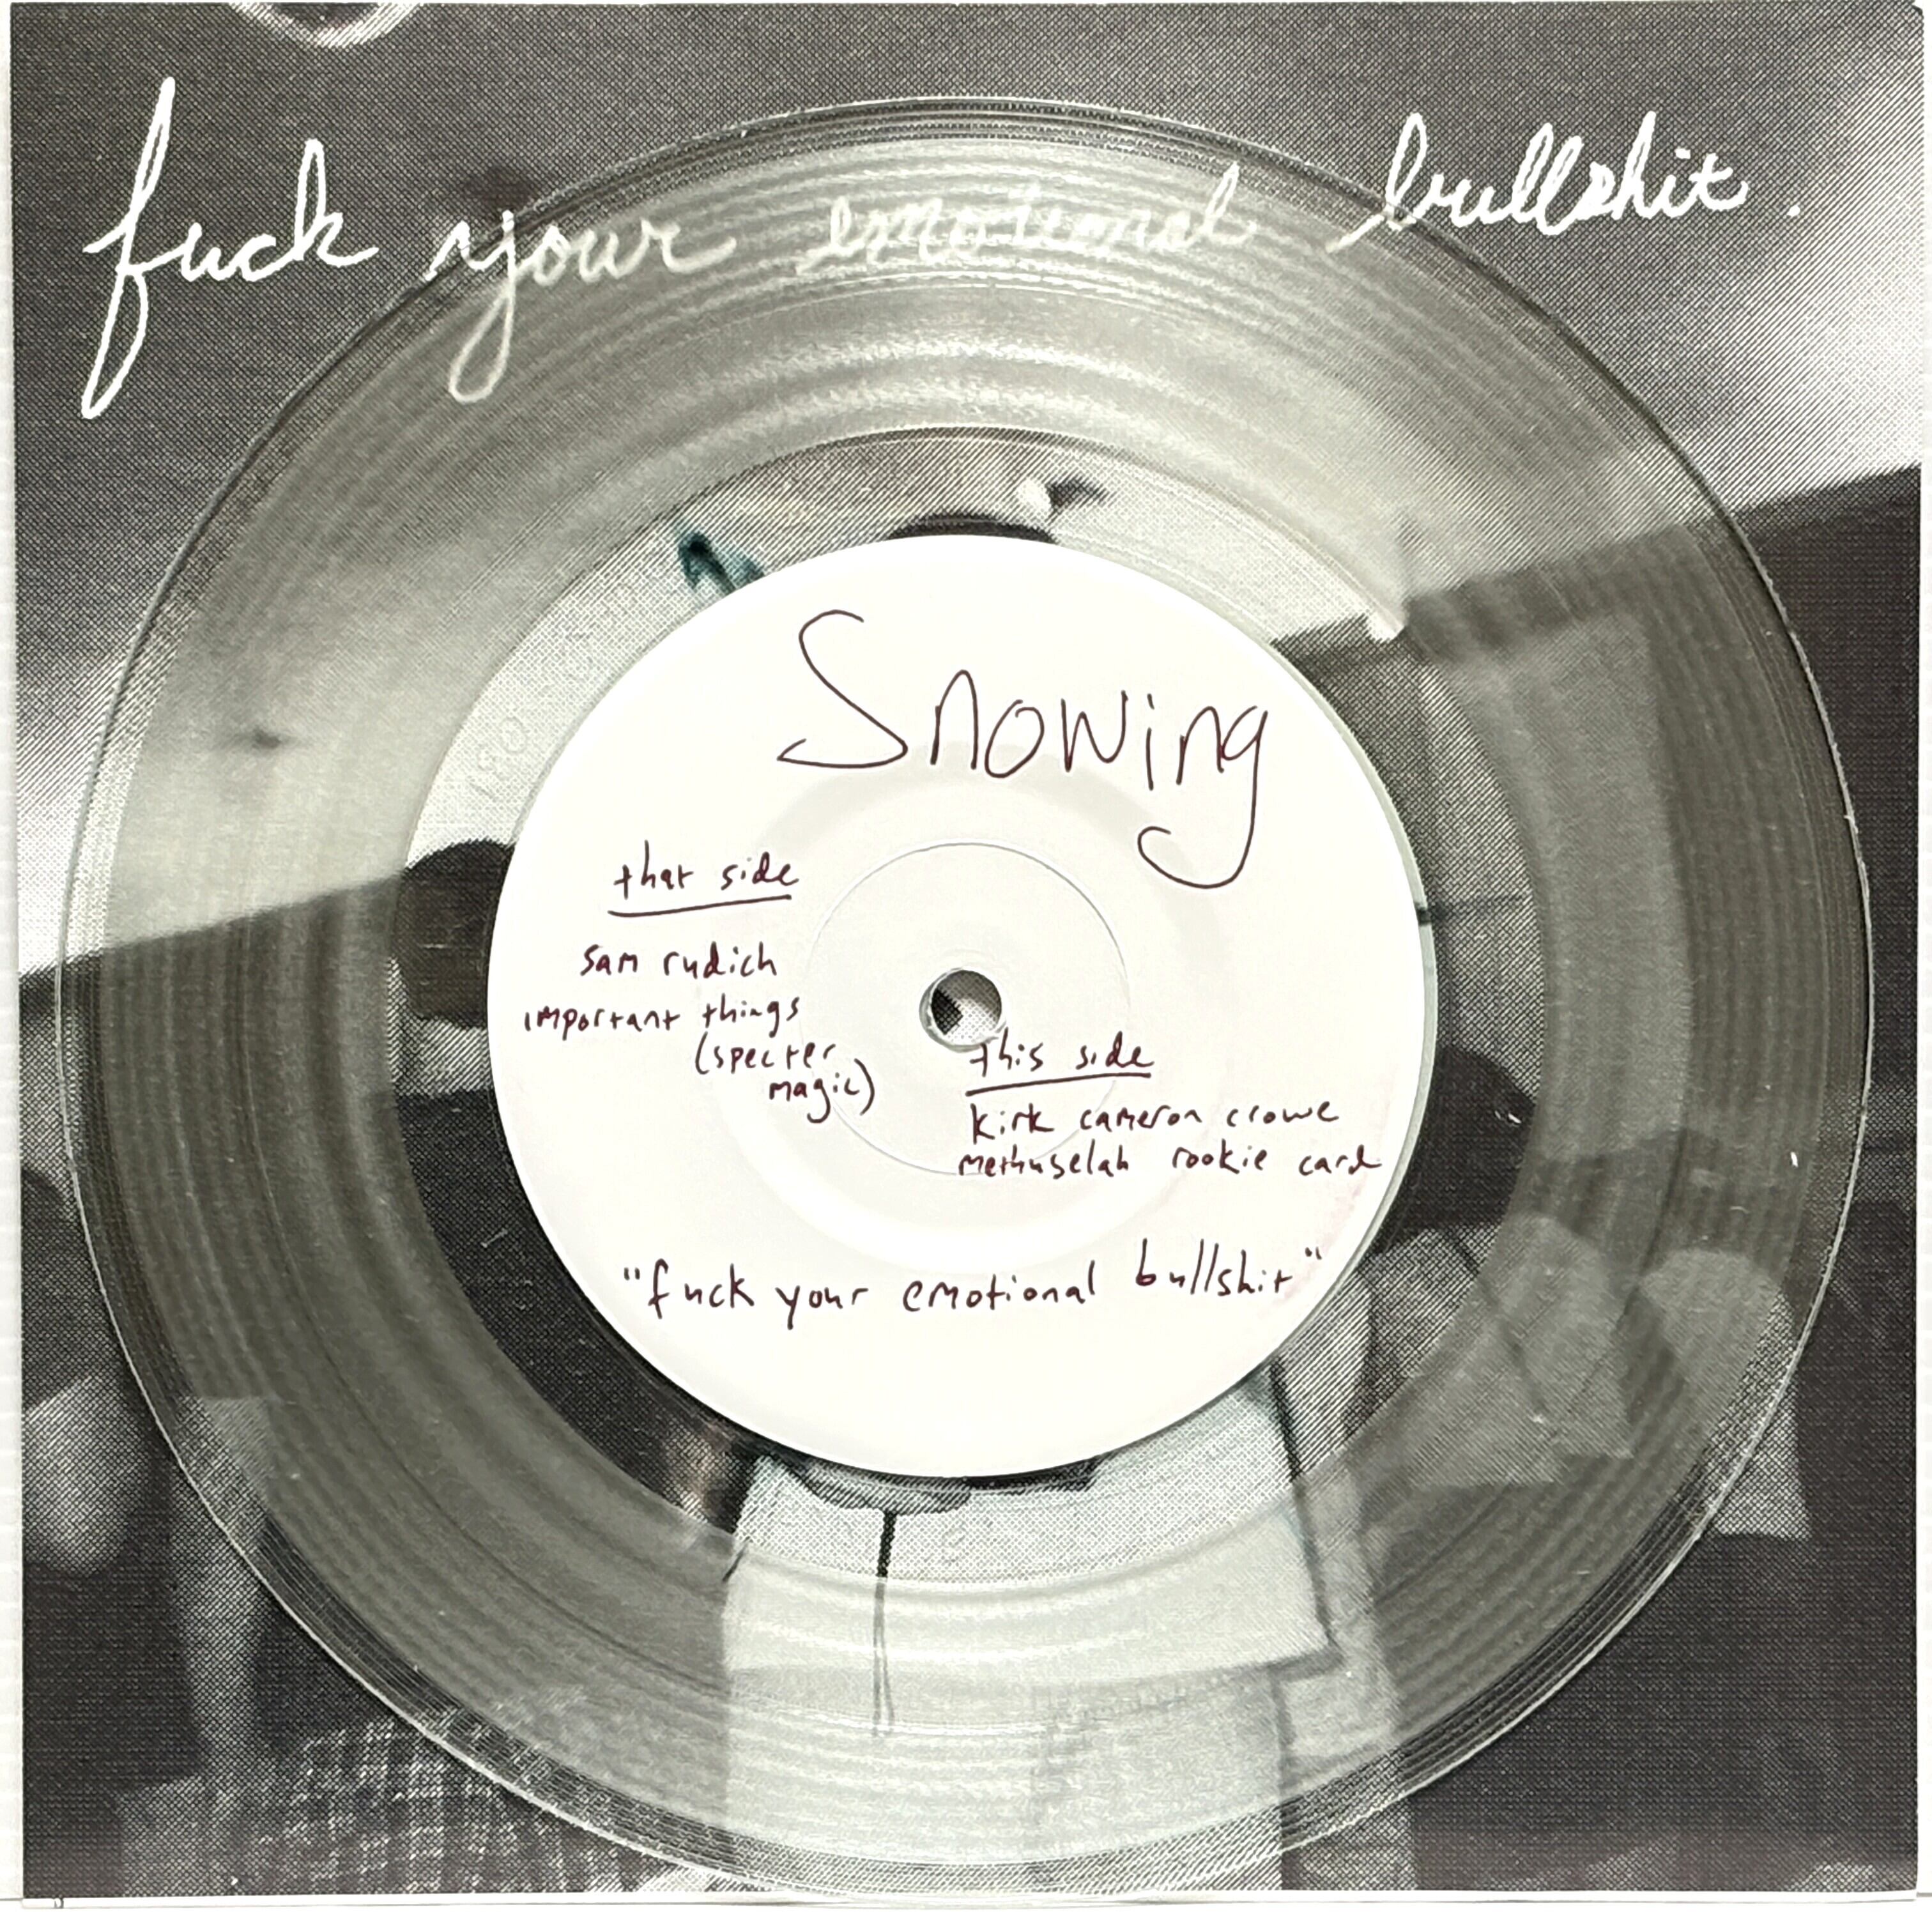 fuck your emotional bullshit.
Snowing
that side
sam rudich
important things
(specter
magic)
this side
kirk cameron crowe
methuselah rookie card
"fuck your emotional bullshit"